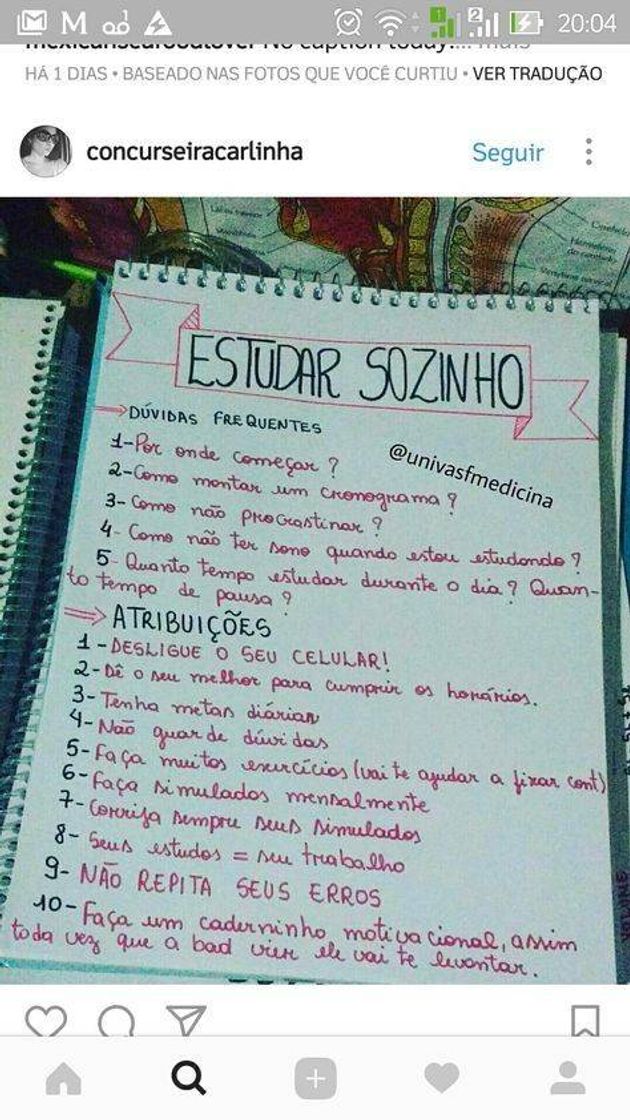 20:04
mexicanscaroutlover No caption today!... mais
HÁ 1 DIAS • BASEADO NAS FOTOS QUE VOCÊ CURTIU • VER TRADUÇÃO
concurseiracarlinha
Seguir
ESTUDAR SOZINHO
DÚVIDAS FREQUENTES
@univasfmedicina
1-Por onde começar?
2-Como montar um cronograma?
3-Como não procrastinar?
4-Como não ter sono quando estou estudando?
5-Quanto tempo estudar durante o dia? Quan-
to tempo de pausa?
ATRIBUIÇÕES
1-DESLIGUE O SEU CELULAR!
2-Dê o seu melhor para cumprir os horários.
3-Tenha metas diárias
4-Não guarde dúvidas
5-Faça muitos exercícios (vai te ajudar a fixar cont)
6-Faça simulados mensalmente
7-Corrija sempre seus simulados
8-Seus estudos = seu trabalho
9-NÃO REPITA SEUS ERROS
10-Faça um caderninho motivacional, assim
toda vez que a bad vier ele vai te levantar.